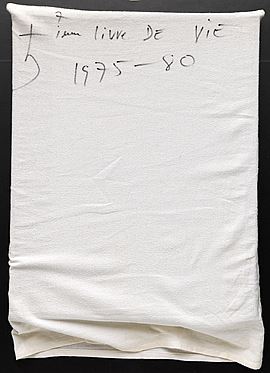 5 ième LIVRE DE VIE
1975-80